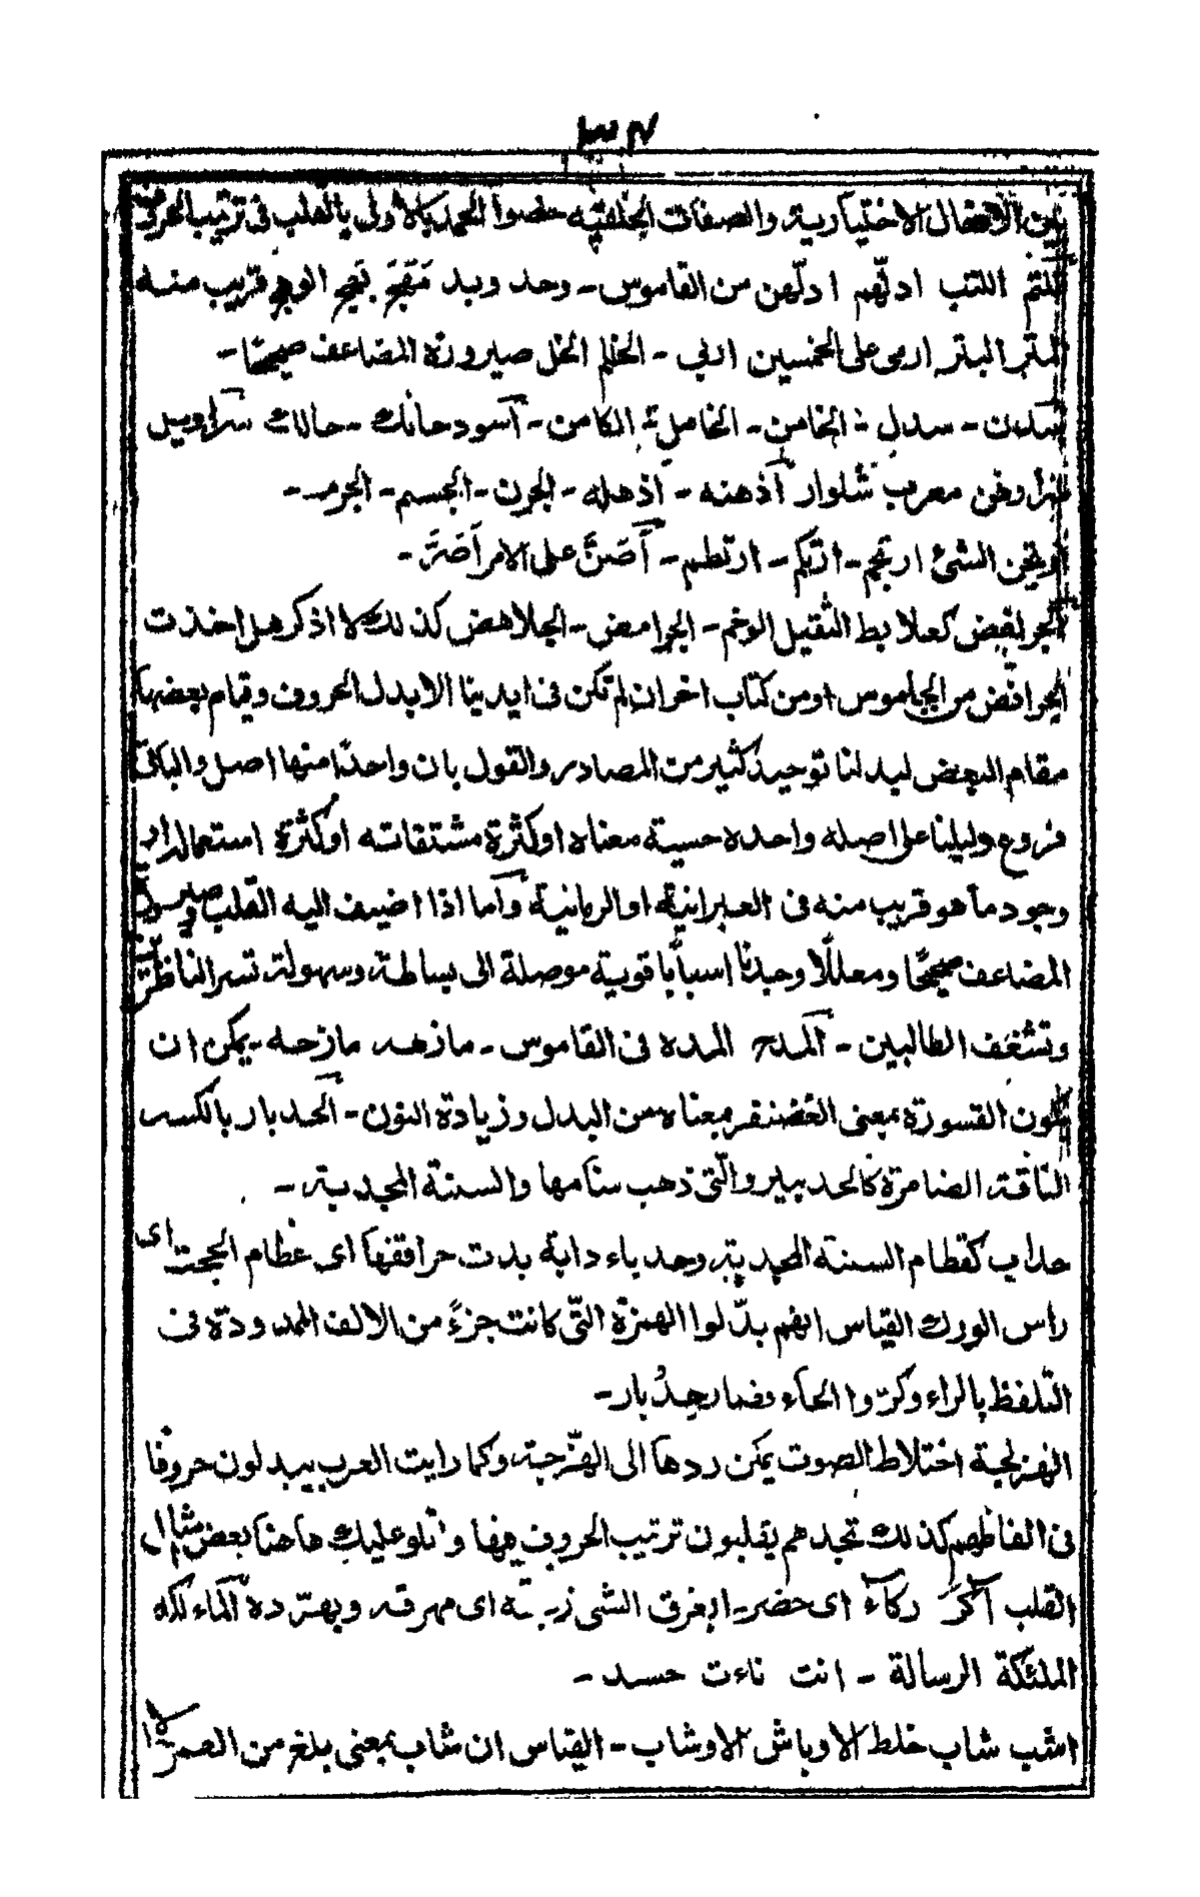 ٣٤
بين الافعال الاختيارية والصفات الخلقيه خصوا الحمد بالاولى بالقلب فى ترتيب الحروف
اللتم اللتب ادلّهم ادلّهن من القاموس - وحد وبد قريب منه
المتر البتر ارمى على الخمسين اربى - الخلم الخل صيرورة المضاعف صحيحًا -
سدن - سدل - الخامن - الخامل الكامن - آسود حانك - حالك سراويل
معرب شلوار آذهنه - آذهله - الجرن - الجسم - الجرم -
الشئ ارتجم - ارتكم - ارتطم - آضنّ على الامر اضرّ -
كعلابط الثقيل الوخم - الجرامض - الجلاهض كذلك لا اذكر هل اخذت
الجرافض من الجاموس اومن كتاب اخر ان لم تكن فى ايدينا الا بدل الحروف وقيام بعضها
مقام البعض ليدلنا توحيد كثير من المصادر والقول بان واحدًا منها اصل والباقى
فروع دليلنا على اصله واحده حسية معناه اوكثرة مشتقاته اوكثرة استعماله او
وجود ما هو قريب منه فى العبرانية او الريانية وآما اذا اضيف اليه القلب و صيرورة
المضاعف صحيحًا ومعللًا وجدنا اسبابًا قوية موصلة الى بساطة وسهولة تسر الناظرين
وتشغف الطالبين - آلمدح المده فى القاموس - مازهه مازحه - يمكن ان
تكون القسورة بمعنى الغضنفر بمعناه من البدل وزيادة النون - آلحدبار بالكسر
الناقة الضامرة كالحدبير والّتى ذهب سنامها والسنة المجدبة -
حداب كقطام السنة المجدبة وحدباء دابة بدت حراقفها اى عظام الحجبت اى
راس الورك القياس انهم بدّلوا الهمزة التّى كانت جزءً من الالف الممدودة فى
التلفظ بالراء وكرّوا الحآء فصار حِدْبار -
الهزلجية اختلاط الصوت يمكن ردها الى الهزّجة وكما رايت العرب يبدلون حروفًا
فى الفاظهم كذلك تجدهم يقلبون ترتيب الحروف فيها واتلو عليك هاهنا بعض مثال
القلب آكرَ ركآء اى حضر - ابغرق الشى اى مهرقه وبهرده الماء لكه
الملئكة الرسالة - انت ناءت حسد -
اشب شاب خلط الاوباش الاوشاب - القياس ان شاب بمعنى بلغ من العمر